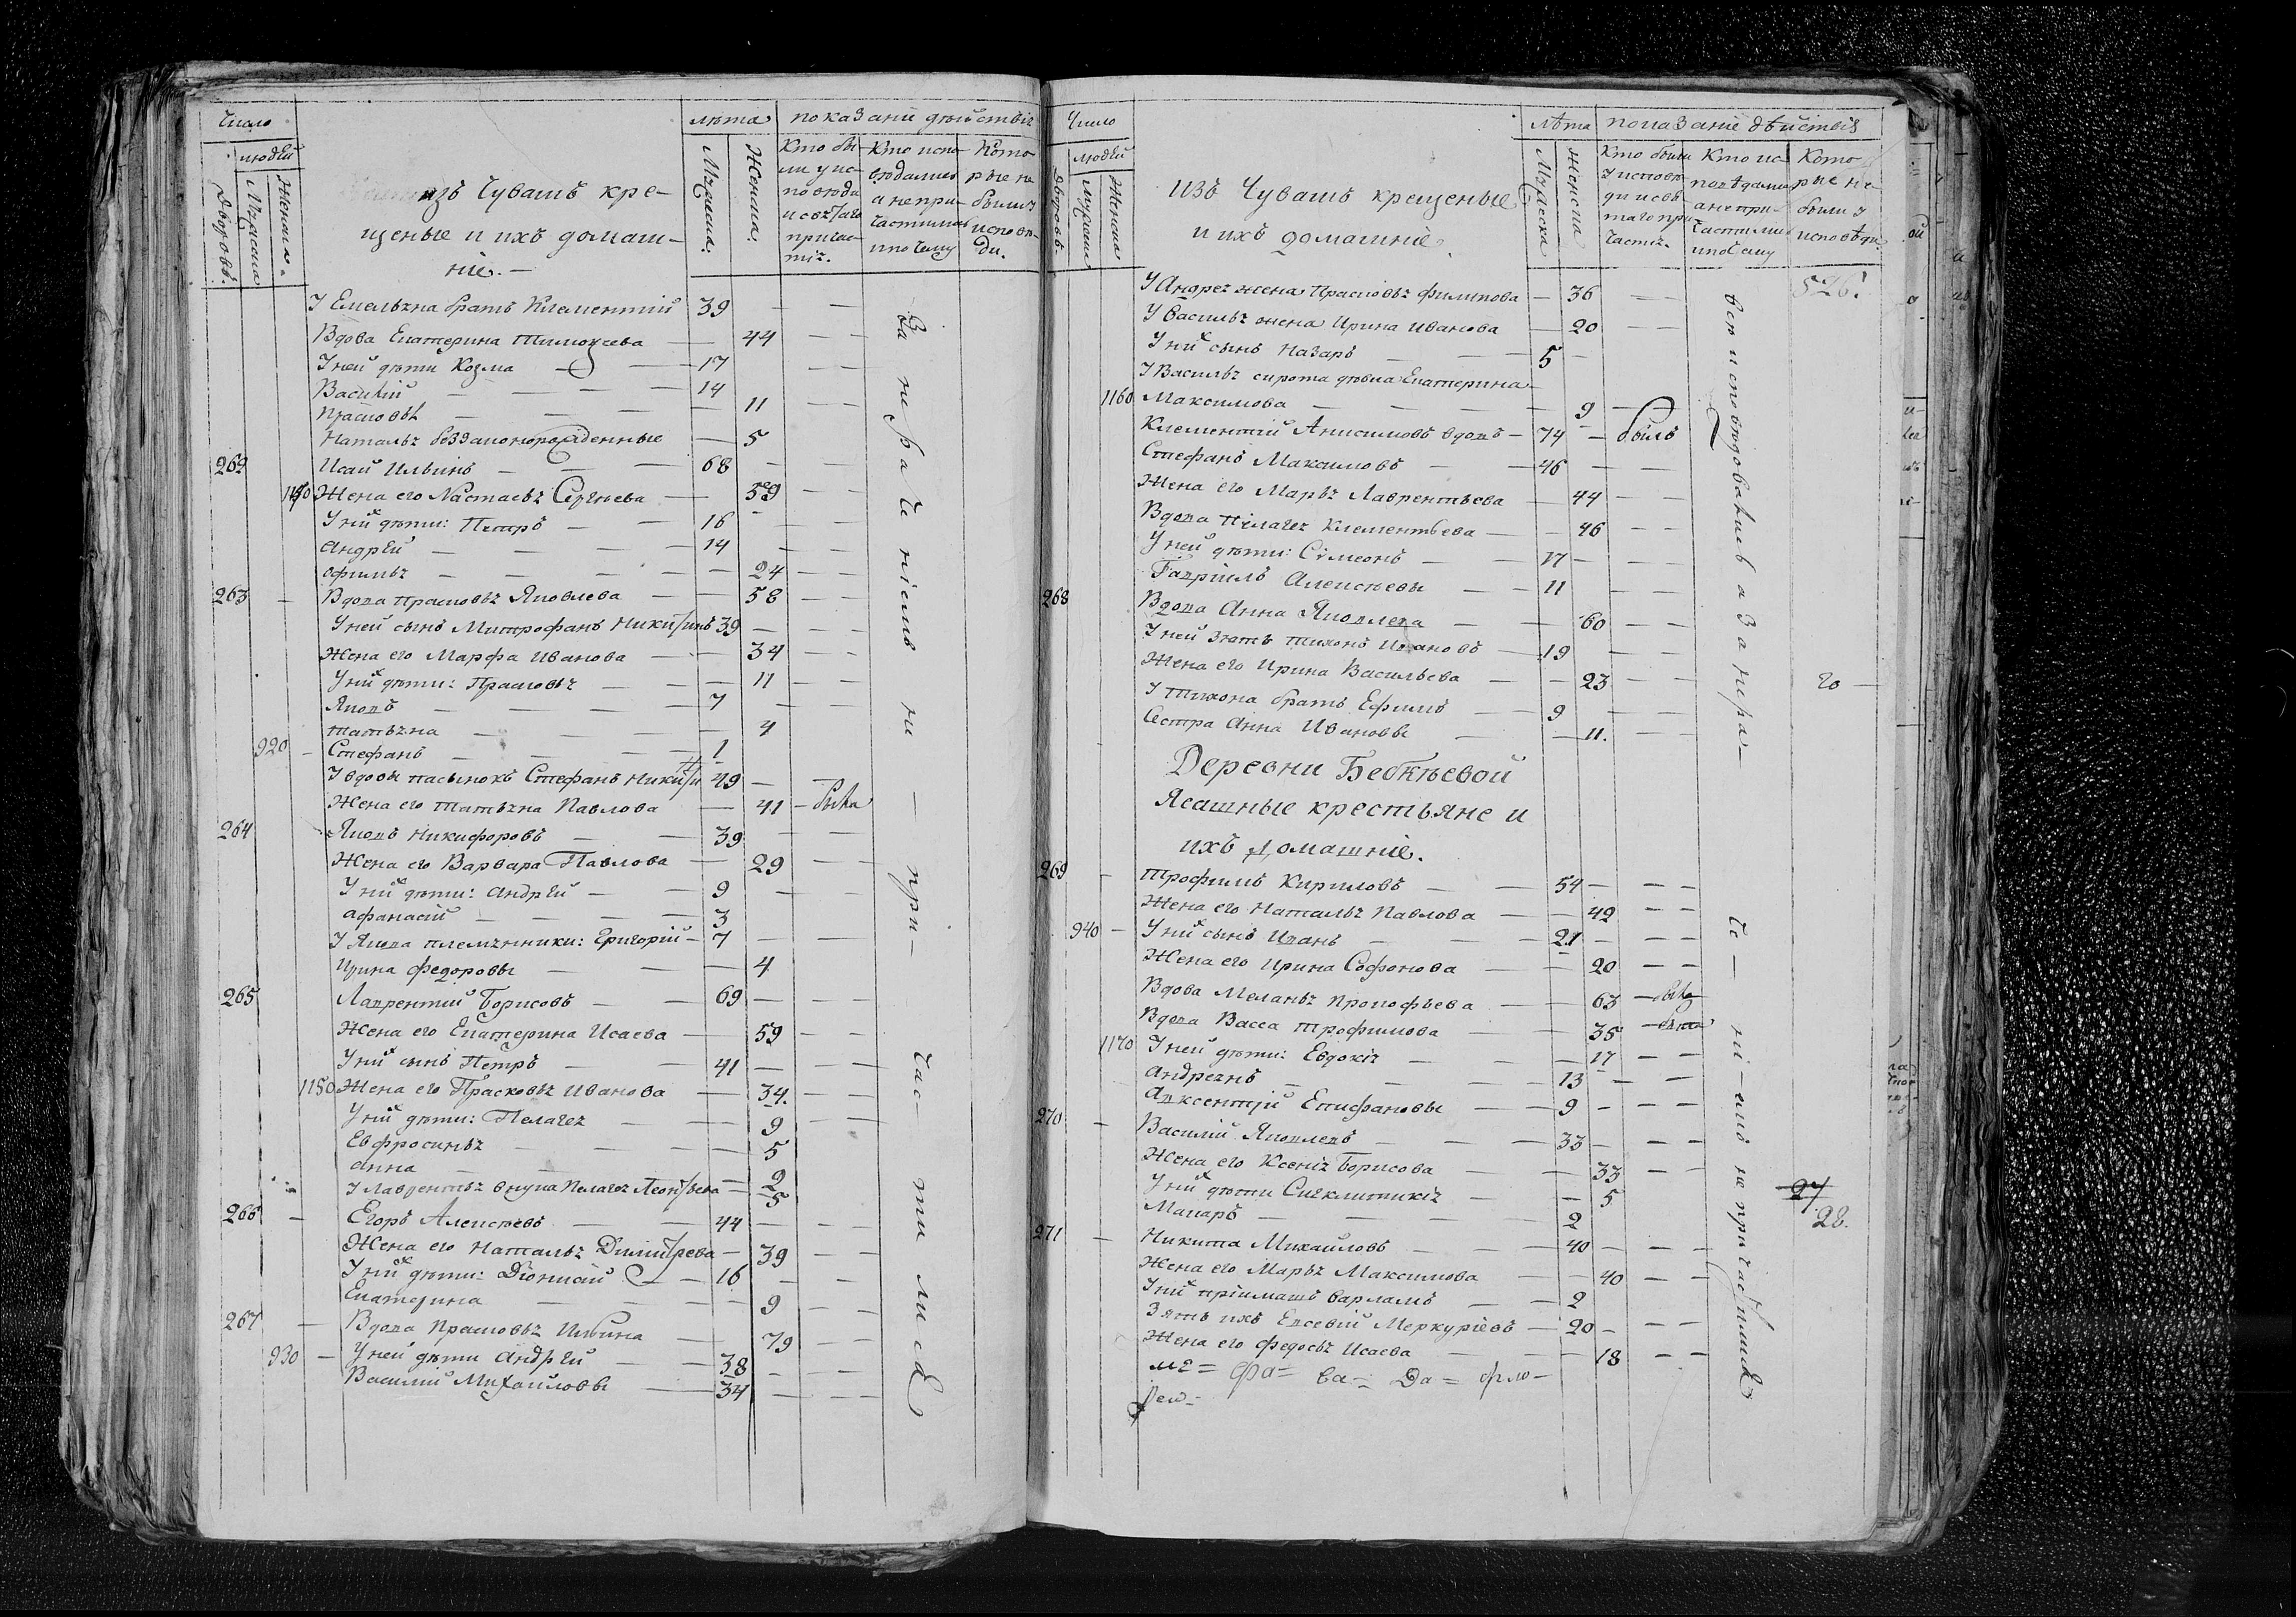 Число
людей
Дворовъ.
Мужеска
Женска.
изъ Чувашъ кре-
щеные и ихъ домаш-
ніе.
лѣта
показаніи дѣйствія
Мужеска.
Женска.
Кто бы-
ли у ис-
повѣди
и свѧтаго
причас-
тія.
Кто испо-
вѣдался
а не при-
частился
и по чему
Кото-
рые не
были у
исповѣ-
ди.
У Емельяна братъ Климентій 39
Вдова Екатерина Тимоѳеева 44
У ней дѣти Козма 17
Василій 14
Прасковья 11
Наталья беззаконорожденные 5
262 Исай Ильинъ 68
1140 Жена его Настасья Сергѣева 59
У них дѣти: Петръ 16
Андрей 14
Офимья 24
263 Вдова Прасковья Яковлева 58
У ней сынъ Митрофанъ Никитинъ 39
Жена его Марфа Иванова 34
У них дѣти: Прасковья 11
Яковъ 7
Татьяна 4
920 Стефанъ 1
У вдовы пасынокъ Стефанъ Никити 49
Жена его Татьяна Павлова 41 была
264 Яковъ Никифоровъ 39
Жена его Варвара Павлова 29
У них дѣти: Андрей 9
Афанасій 3
У Якова племянники: Григорій 7
Ирина Федоровы 4
265 Лаврентій Борисовъ 69
Жена его Екатерина Исаева 59
У них сынъ Петръ 41
1150 Жена его Прасковья Иванова 34.
У них дѣти: Пелагея 9
Евфросинья 5
Анна 2
У Лаврентья внука Пелагея Леонтьева 5
266 Егоръ Алексѣевъ 44
Жена его Наталья Димитрева 39
У них дѣти: Діонисій 16
Екатерина 9
267 Вдова Прасковья Ильина 79
930 У ней дѣти Андрей 38
Василій Михайловы 34
За нерачніемъ не причастились
Число
людей
Дворовъ.
Мужеска
Женска
Изъ Чувашъ крещеные
и ихъ домашніе.
лѣта
показаніе дѣйствія
Мужеска
Женска
Кто были
у исповѣ-
ди и свѧ-
таго при-
частія.
Кто ис-
повѣдались
а не при-
частились
и по чему
Кото-
рые не
были у
исповѣди.
526.
У Андрея жена Прасковья Филипова 36
У Василья жена Ирина Иванова 20
У них сынъ Назаръ 5
У Василья сирота дѣвка Екатерина
1160 Максимова 9
Климентій Анисимовъ вдовъ 74 былъ
Стефанъ Максимовъ 46
Жена его Марья Лаврентьева 44
Вдова Пелагея Климентьева 46
У ней дѣти: Симеонъ 17
Гавріилъ Алексѣевы 11
268 Вдова Анна Яковлева 60
У ней зять Тихонъ Ивановъ 19
Жена его Ирина Васильева 23
20
У Тихона братъ Ефимъ 9
Сестра Анна Ивановы 11.
Деревни Бебкѣевой
Ясашные крестьяне и
ихъ домашніе.
269 Трофимъ Кириловъ 54
Жена его Наталья Павлова 49
940 У них сынъ Иванъ 21
Жена его Ирина Софонова 20
Вдова Меланья Прокофьева 63 была
Вдова Васса Трофимова 35
1170 У ней дѣти: Евдокія 17
Андреянъ 13
Авксентій Епифановы 9
270 Василій Яковлевъ 33
Жена его Ксенія Борисова 33
У них дѣти Сигклитикія 5
27
28.
Макаръ 2
271 Никита Михайловъ 40
Жена его Марья Максимова 40
У них пріимашъ Варламъ 2
Зять ихъ Евсевій Меркуріевъ 20
Жена его Федосья Исаева 18
всѣ исповѣдовались а за нераченіемъ не причастились